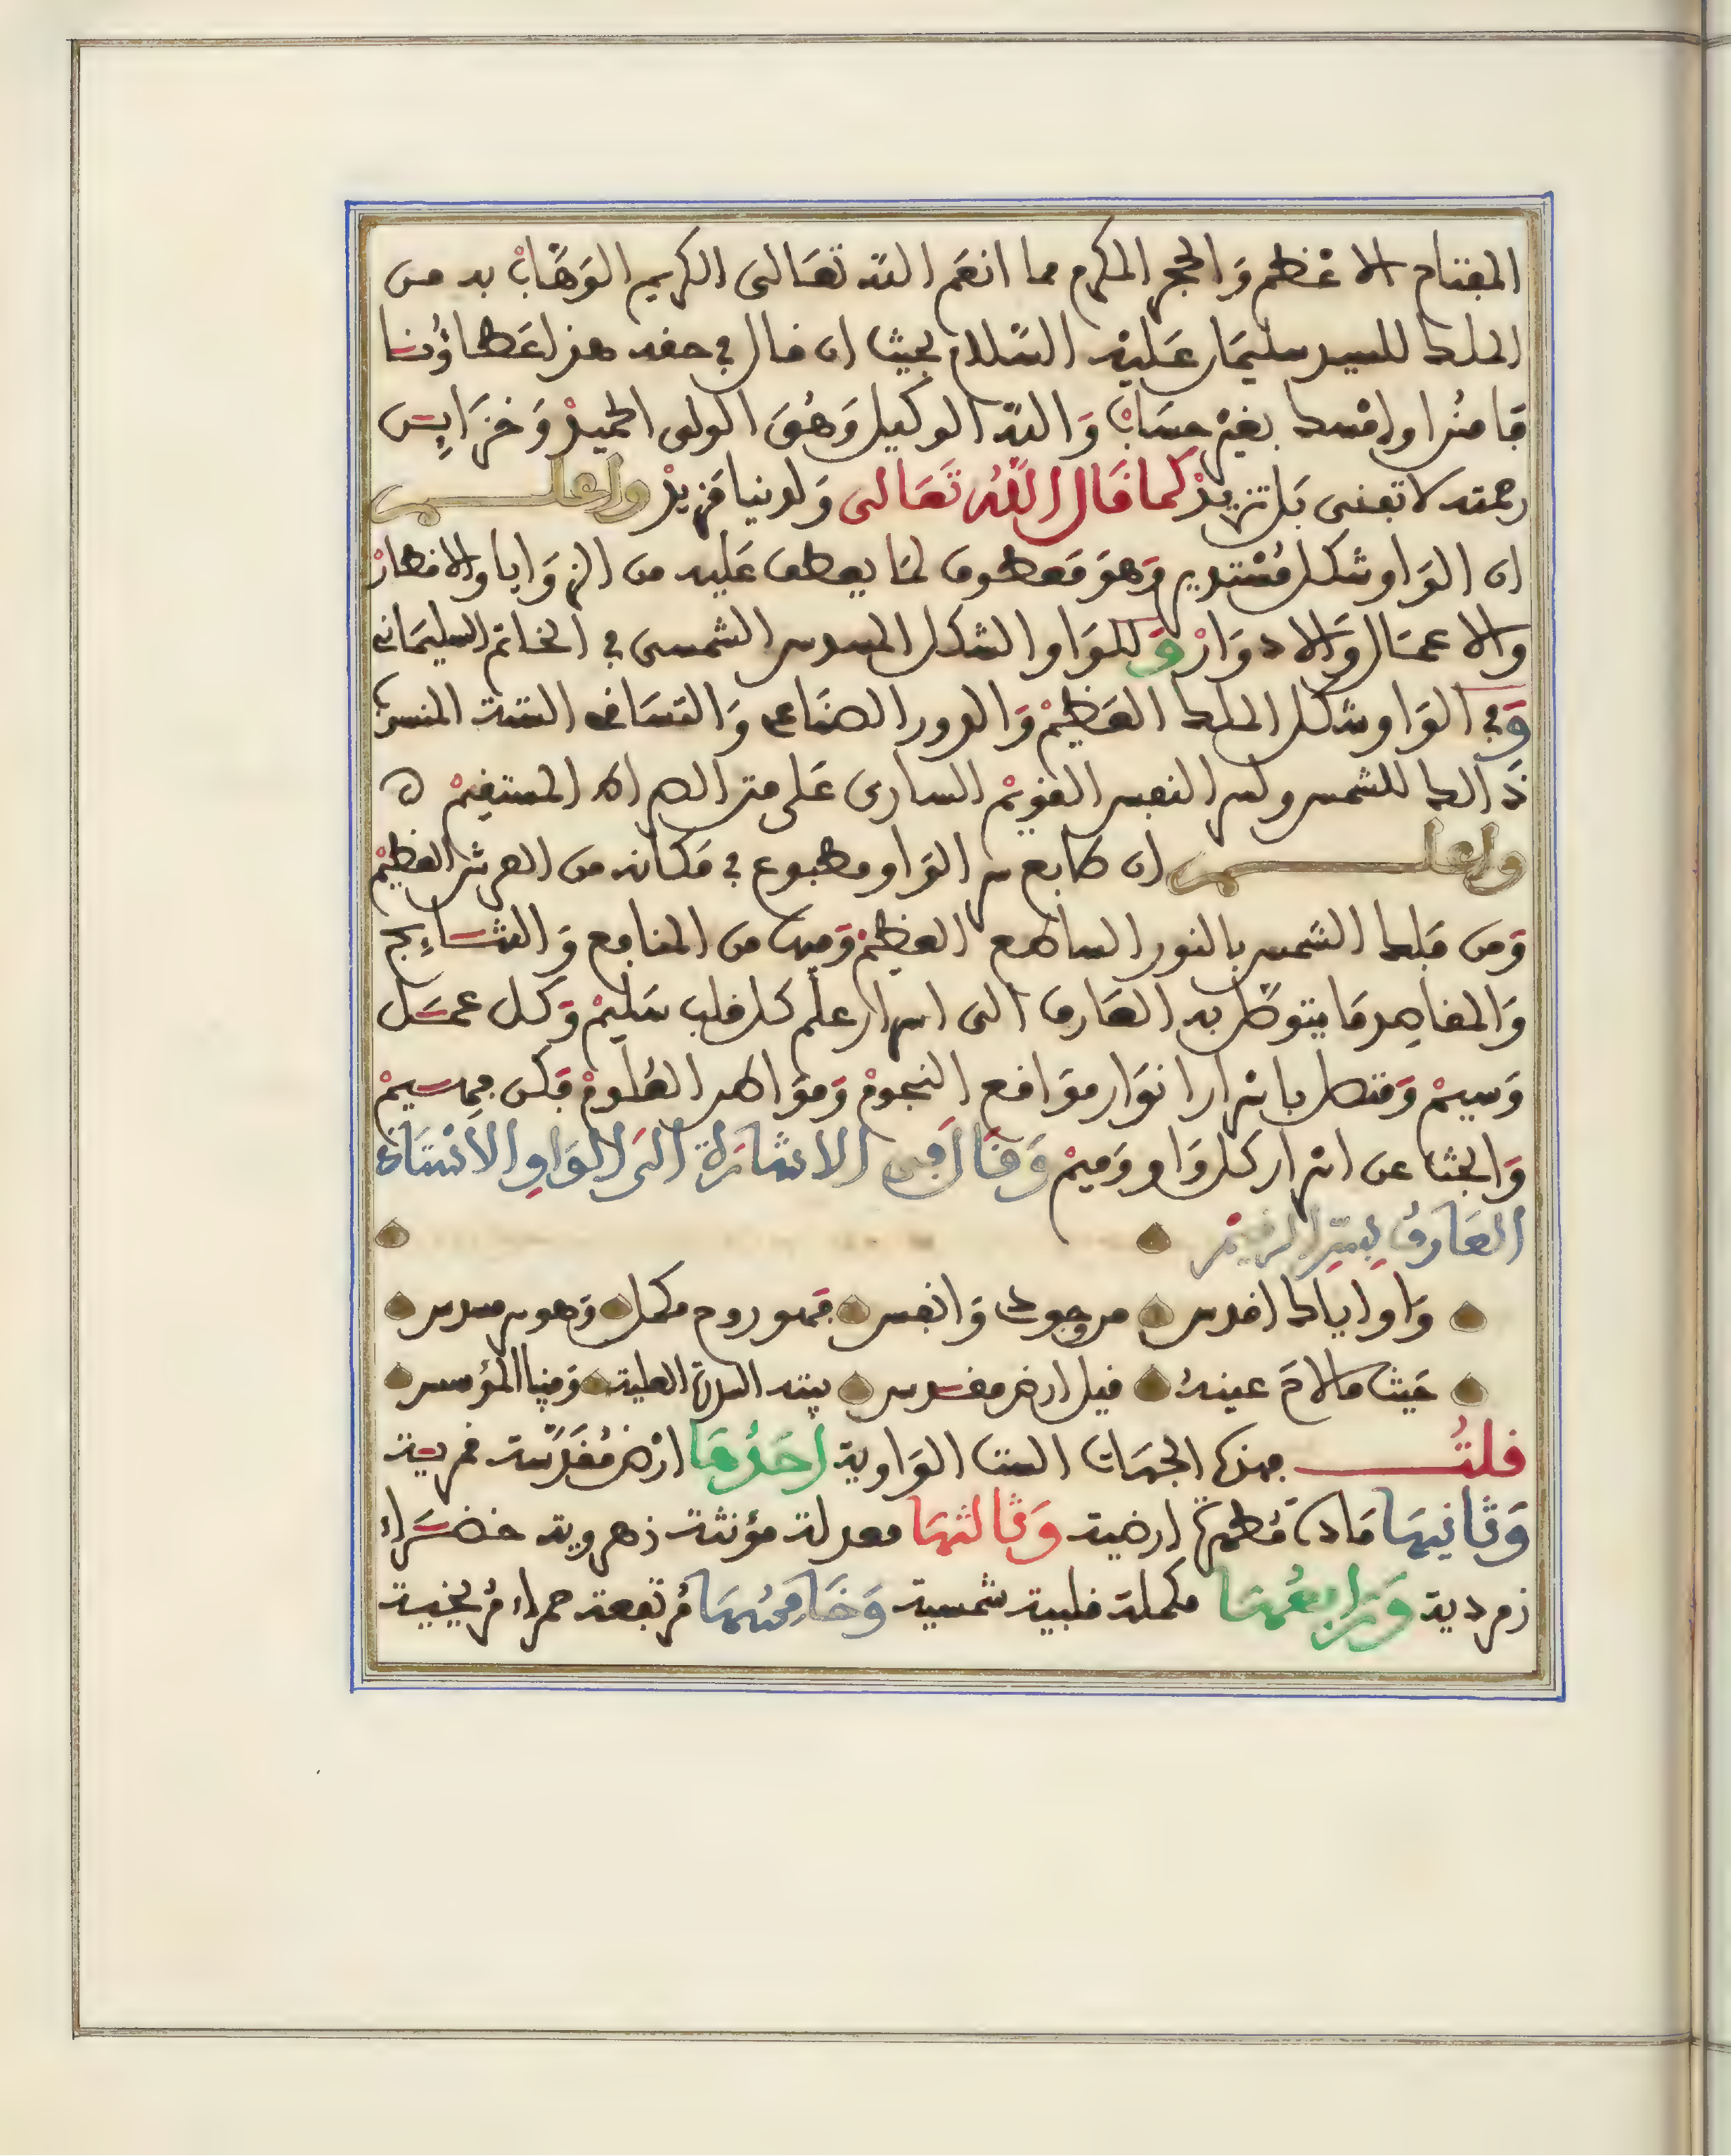 المفتاح الاعظم وَالحجر المكرم مما انعَم اللّه تعَالى الكريم الوَهّابْ به من
الملك للسيد سليمَان عَليْه السّلام بحيث ان قال في حقه هذا عَطاؤُنا
فامنُن او امْسك بغيْر حِسَابْ وَاللّه الوكيل وَهُوَ الولى الحميدْ وَخزَاين
رحمته لا تفنى بَل تزيدْ كما قَال اللَّهُ تَعَالى وَلدينا مَزيدْ واعلم
ان الوَاو شكل مُسْتدير وَهوَ مَعطوف لمَا يعطف عَليه من الزوَايا والاقطارْ
والاعمَال وَالادوَارْ وَللوَاو الشكل المسدس الشمسى في الخاتم السليمَانى
وَفي الوَاو شكل الملك العَظيمْ وَالدور الصنَاعى وَالتسَاقى الستة المنسوب
ذَالك للشمس ولسر النفس القويْم السارى عَلى متن الصراط المستقيمْ
واعلم ان طابع سر الوَاو مطبوع في مَكانه من العرش العظيمْ
وَمن فلك الشمس بالنور الساطع العظيمْ وَفيه من المنافع وَالنتَائج
وَالمقاصِد مَا يتوصّل به العَارف الى اسرار علم كل قلب سَليمْ وَكل عمَل
وَسيمْ وَمتصل باسْرار انوَار موَاقع النجومْ وَموَاطر العُلومْ فكن
وَابحث عن اسْرار كل وَاو وَميمْ وَقَالَ فِى الاشَارَة الىَ الوَاوِ الاسْتَاذ
العَارفُ بِسِرِّ الرقيمْ
وَاو اياك اقدس من وجودك وَانفس فهو روح مكمل وَهو سر مسدس
حَيث مالامَ عينهُ قيل ارض مقدس بيته السدرة العلية وَفينا المؤسس
قلتُ فهذه الجهَات الست الوَاوية اَحَدُهَا ارْض مُقدَّسة قمرية
وَثانيهَا مَادة مُطهرة ارضية وَثالثهَا معدلة مؤنثة زهروية خضرَاء
زمردية وَرَابعُهَا مكملة قلبية شمسية وَخَامسُهَا مُرتفعة حمراء مُريخية